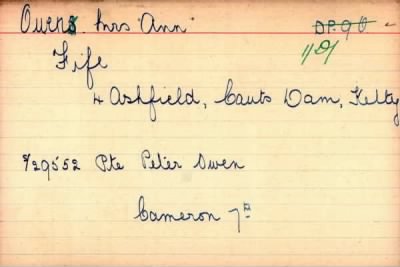 Owens. Mrs "Ann" DP.90
1101
Fife
4 Ashfield, Cauts Dam, Kelty
S/29552 Pte Peter Owen
Cameron 7th